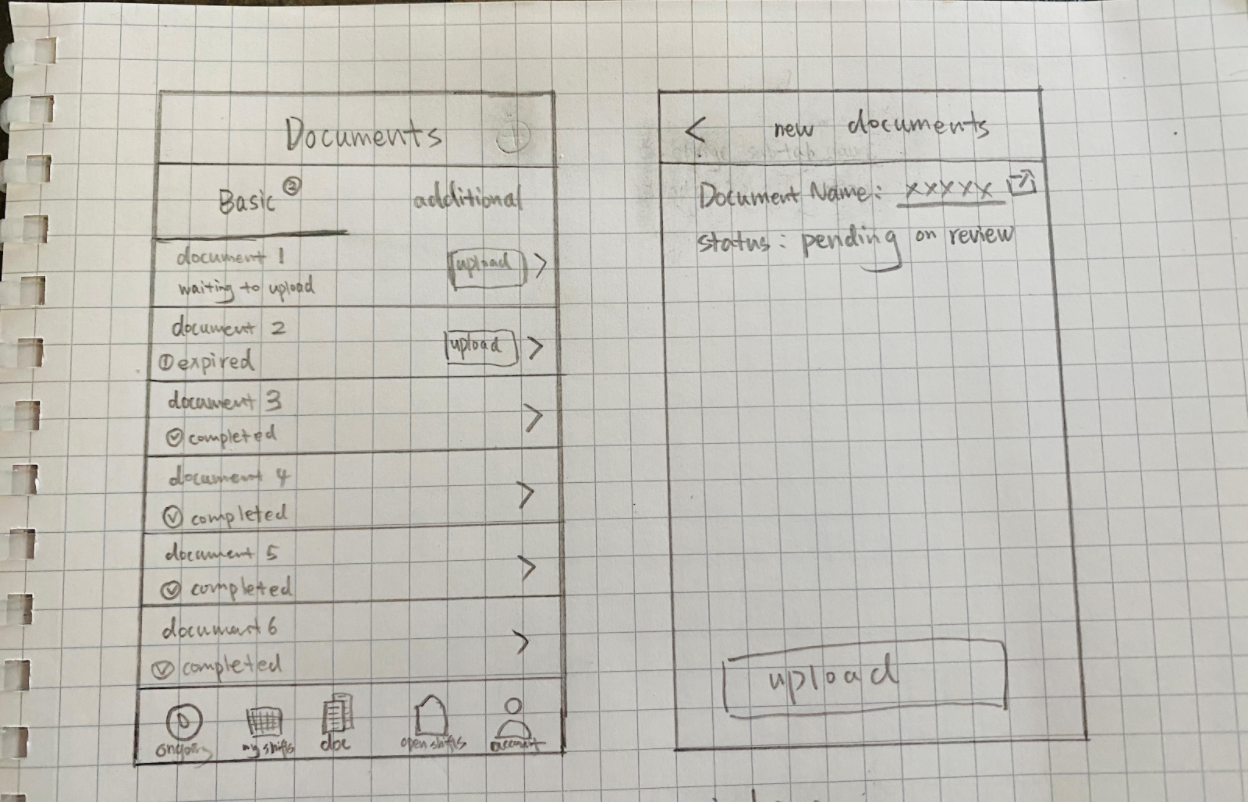 Documents
Basic 2 additional
document 1
waiting to upload
upload >
document 2
! expired
upload >
document 3
completed >
document 4
completed >
document 5
completed >
document 6
completed >
ongoing my shifts doc open shifts account
< new documents
Document Name: xxxxx
status: pending on review
upload